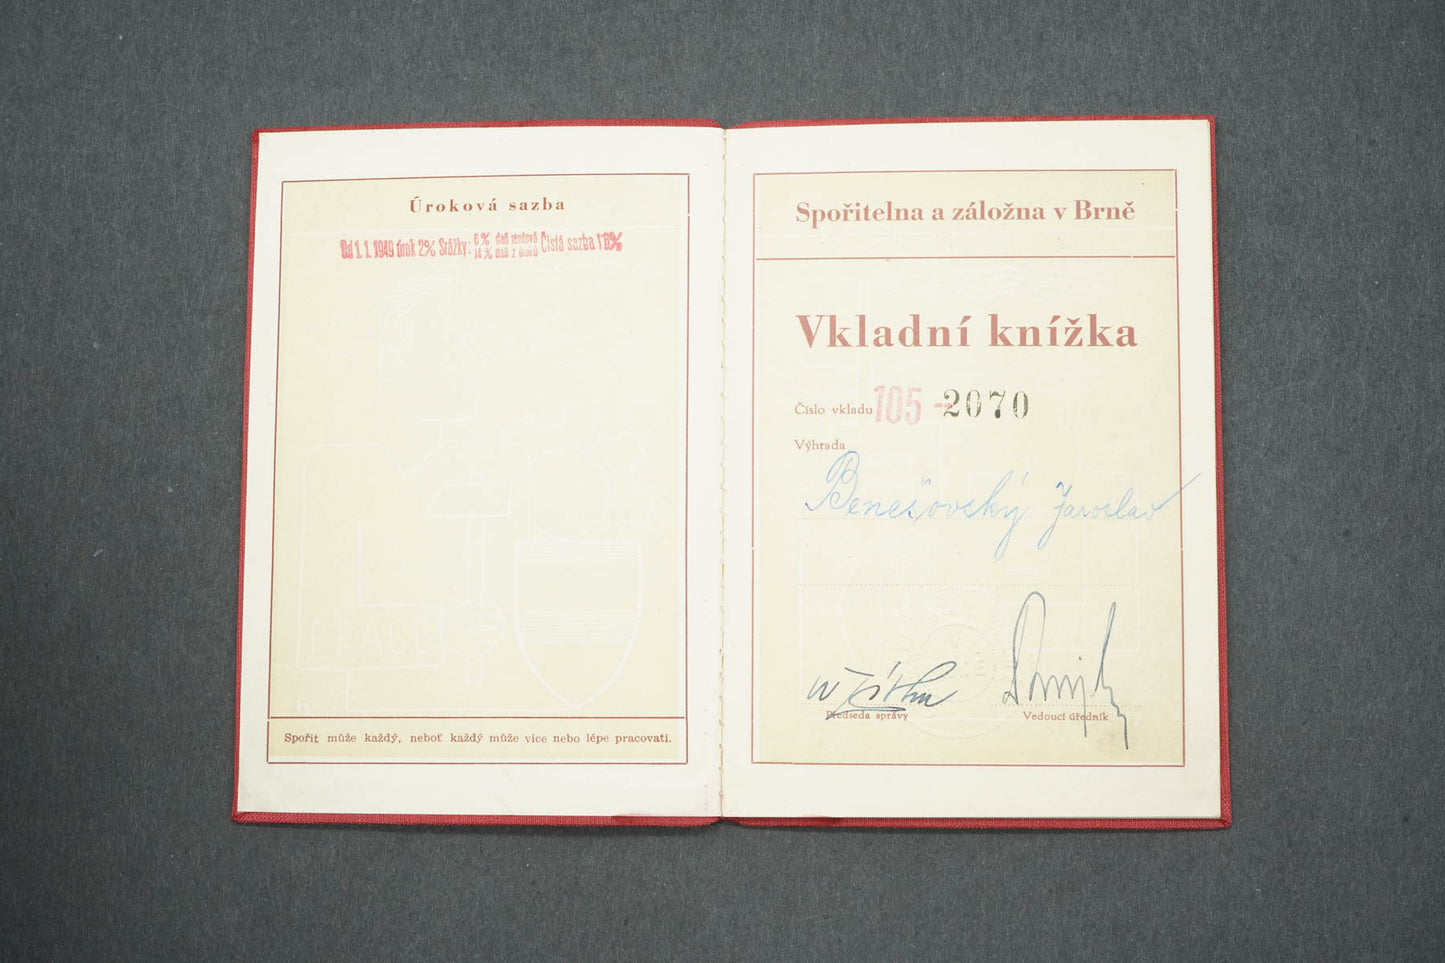 Úroková sazba
Od 1. 1. 1949 úrok 2% Srážky: 6% daň rentová Čistá sazba 1·6%
14% daň z úroků
PRACE
Spořit může každý, neboť každý může více nebo lépe pracovati.
Spořitelna a záložna v Brně
Vkladní knížka
Číslo vkladu 105-2070
Výhrada
Benešovský Jaroslav
Předseda správy
Vedoucí úředník